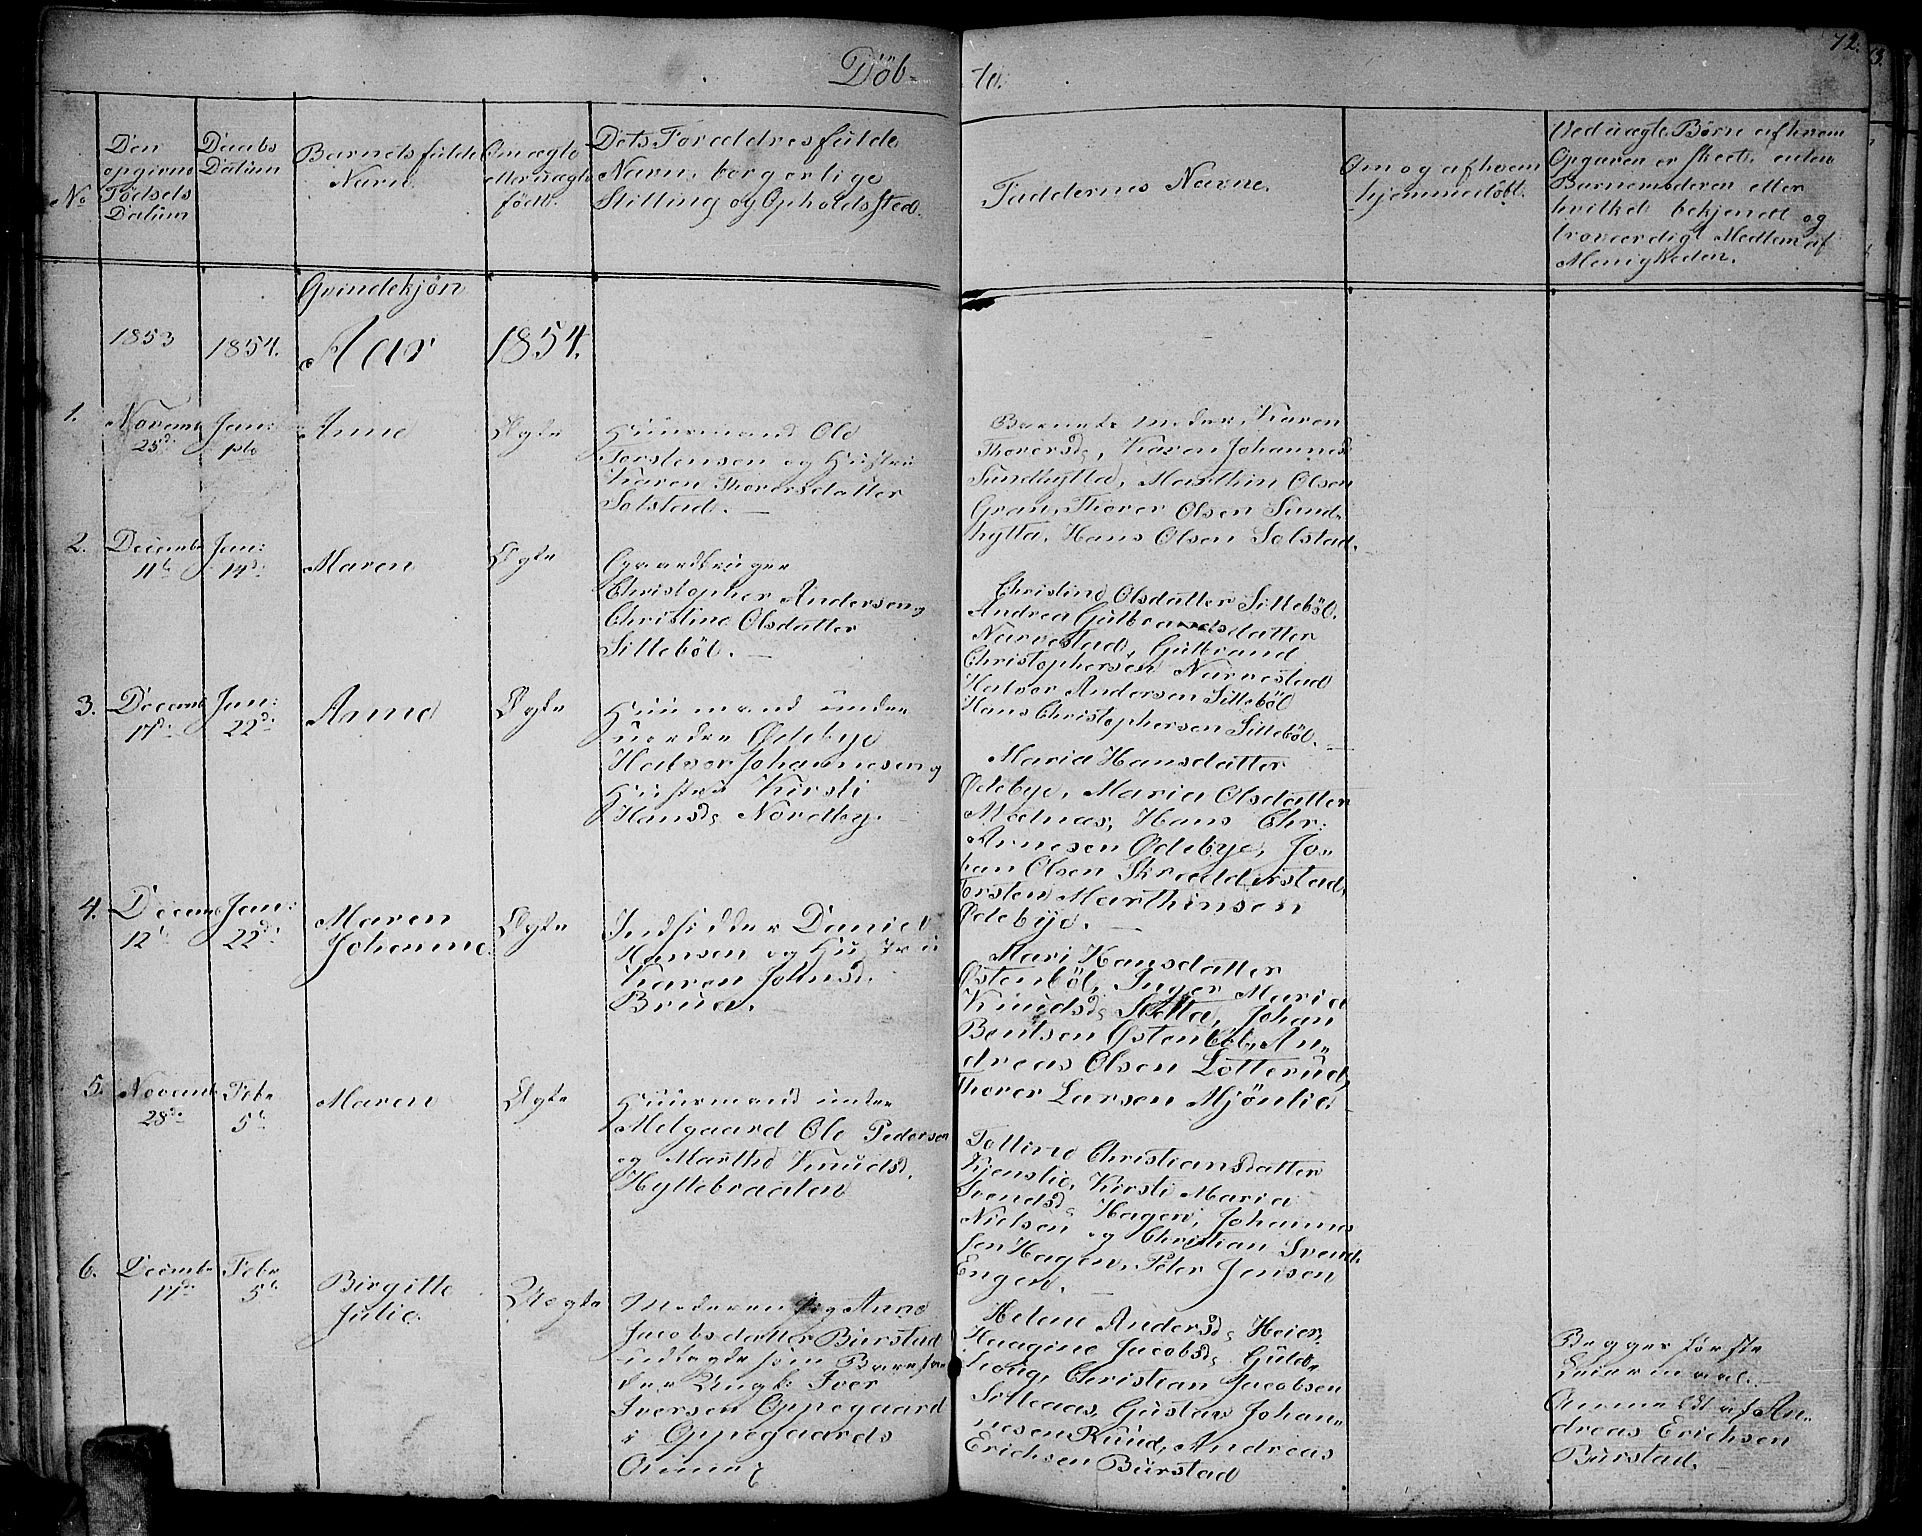 72.
Döb-
te.
No
Den
opgivne
Fødsels
Datum
Daabs
Datum
Barnets fulde
Navn.
Om ægte
eller uægte
født.
Dets Forældres fulde
Navn, borgerlige
Stilling og Opholdssted.
Faddernes Navne.
Om og af hvem
hjemmedøbt.
Ved uægte Børn af hvem
Opgaven er skeet, enten
Barnemoderen eller
hvilket bekjendt og
troværdigt Medlem af
Menigheden.
Qvindekjön
1853
1854.
Aar
1854.
1.
Novemb
25d.
Jan:
1ste
Anne
Ægte
Huusmand Ole
Torstensen og Hustru
Karen Thorersdatter
Solstad. —
Barnets moder, Karen
Thorersd, Karen Johannesd
Sundhytta, Marthin Olsen
Gran, Thorer Olsen Sund-
hytta, Hans Olsen Solstad.
2.
Decemb
11t
Jan:
14d.
Maren
Ægte
Gaardbruger
Christopher Andersen og
Christine Olsdatter
Sillebøl. —
Christine Olsdatter Sillebøl.
Andrea Gulbrandsdatter
Narvestad, Gulbrand
Christophersen Narvestad
Halvor Andersen Sillebøl
Hans Christophersen Sillebøl. —
3.
Decemb
17d.
Jan:
22d.
Anne
Ægte
Huusmand under
nordre Ødebye
Halvor Johannesen og
Hustru Kirsti
Hansd Nordby. —
Maria Hansdatter
Ødebye, Maria Olsdatter
Melnæs, Hans Chr:
Arnesen Ødebye, Jo-
han Olsen Skredderstad,
Torsten Marthinsen
Ødebye. —
4.
Decemb
12t
Jan:
22d.
Maren
Johanne.
Ægte
Indsidder Daniel
Hansen og Hustru
Karen Johnsd.
Brua.
Mari Hansdatter
Østenbøl, Inger Maria
Knudsd Sletta, Johan
Bentsen Østenbøl, An-
dreas Olsen Lotterud,
Thorer Larsen Mjönlie.
5.
Novemb
28de
Febr
5t
Maren
Ægte
Huusmand under
Melgaard Ole Pedersen
og Marthe Knudsd.
Hyttebraaten
Tolline Christiansdatter
Kjenslie, Kirsti Maria
Svendsd Hagen, Johannes
Nielsen og Christian Svend-
sen Hagen, Peter Jensen
Engen. —
6.
Decemb
17d.
Febr
5t
Birgitte
Julie.
Uægte
Moderen Pig Anne
Jacobsdatter Burstad
udlagde som Barnefa-
der Ungk: Iver
Iversen Oppegaard
i Oppegaards
Annex
Helene Andersd Heier
Haagine Jacobsd Guld-
houg, Christian Jacobsen
Silleaas, Gustav Johan-
nesen Ruud, Andreas
Erichsen Burstad
Begges første
Leiermaal. —
Anmeldt af An-
dreas Erichsen
Burstad. —